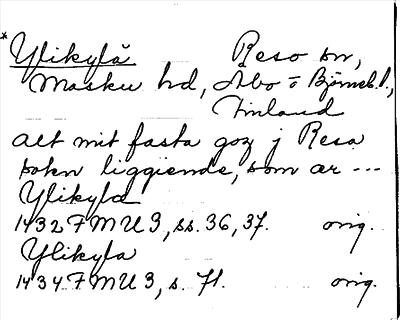 * Ylikylä Reso sn,
Masku hd, Åbo o Björneb. l.,
Finland
alt mit fasta goz j Resa
sokn liggiende, som ær ---
Ylikyla
1432 FMU 3, ss. 36, 37. orig.
Ylikyla
1434 FMU 3, s. 71. orig.